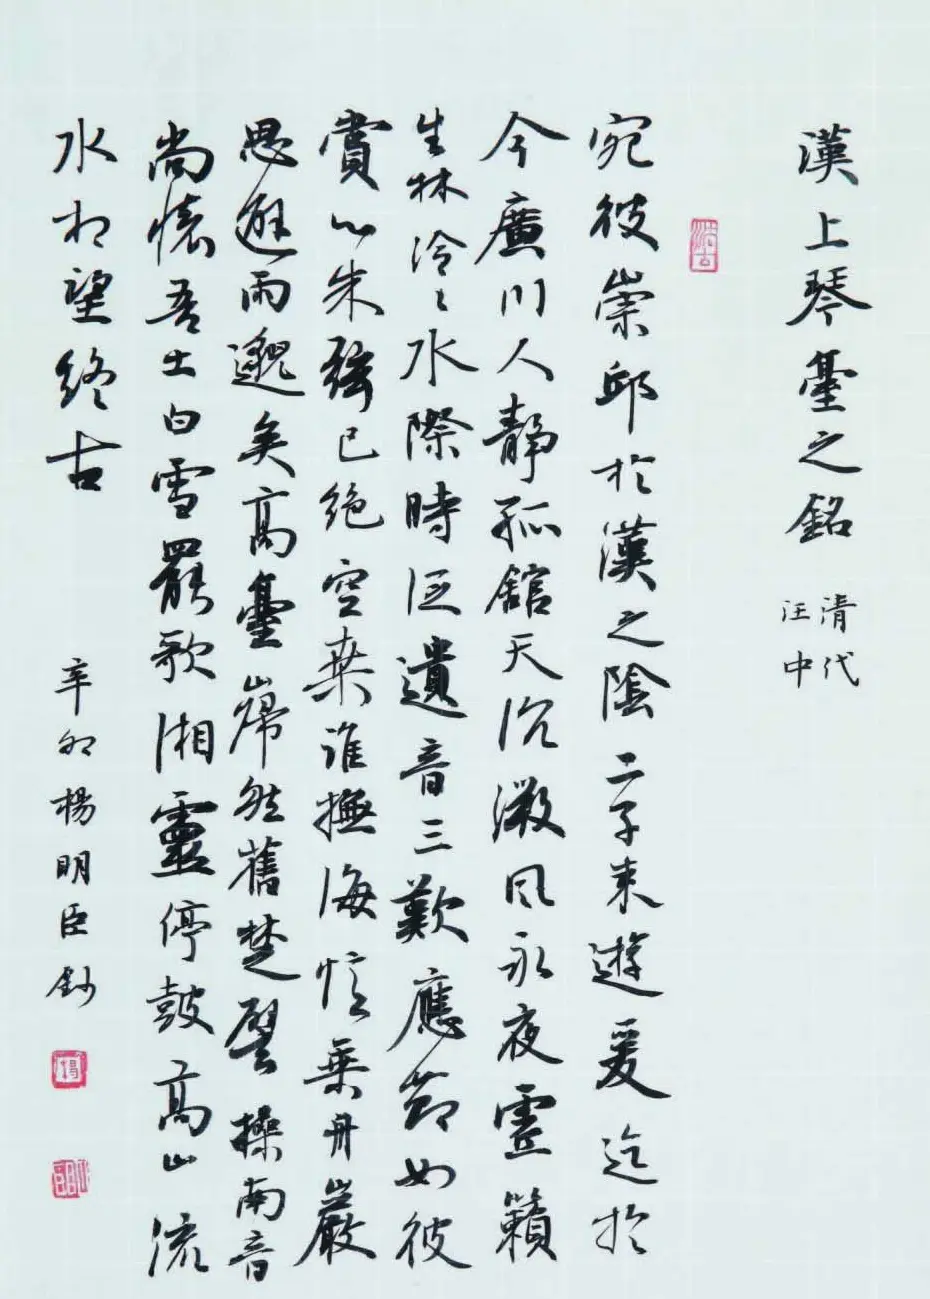 漢上琴臺之銘
清代
汪中
宛彼崇邱於漢之陰二子来遊爰迄於
今廣川人静孤館天沉微風永夜靈籟
生林泠々水際時泛遺音三歎應節如彼
賞心朱弦已絕空桒誰撫海憶乗舟巖
思避雨邈矣高臺巋然舊楚譬操南音
尚懷吾土白雪罷歌湘靈停鼓高山流
水相望終古
辛卯楊明臣鈔